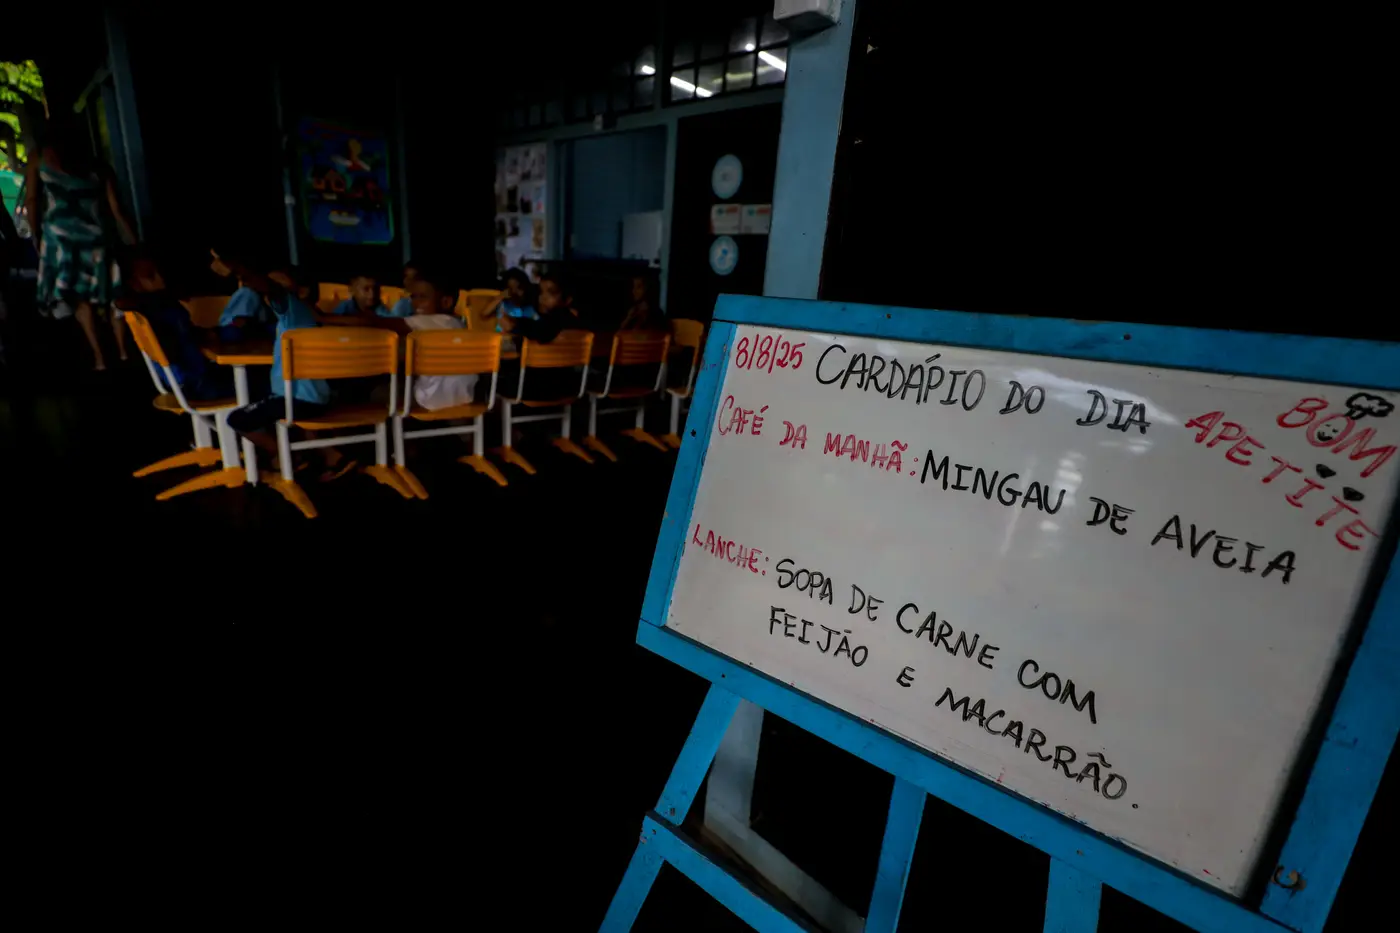 8/8/25 CARDÁPIO DO DIA
BOM
APETITE
CAFÉ DA MANHÃ: MINGAU DE AVEIA
LANCHE: SOPA DE CARNE COM
FEIJÃO E MACARRÃO.